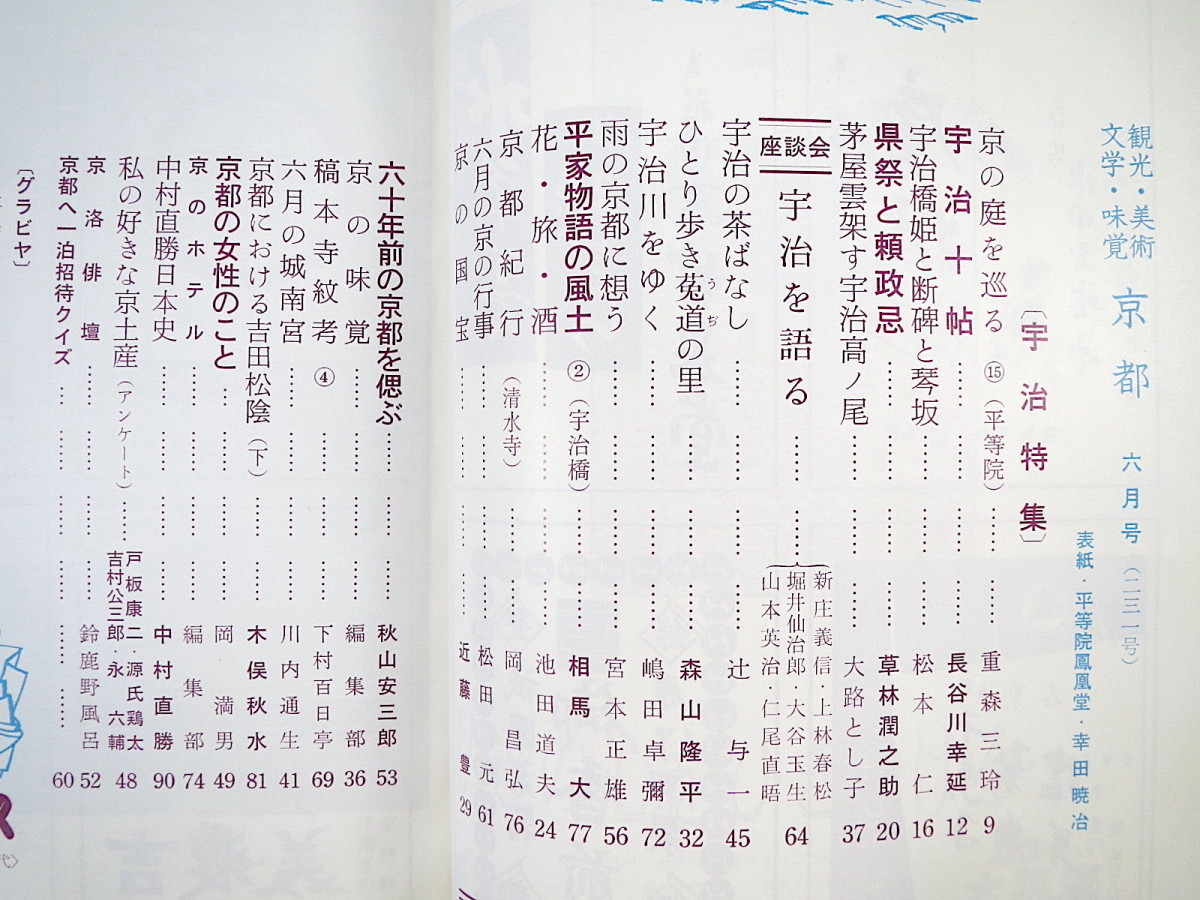 観光・美術
文学・味覚
京都 六月号(二三一号)
表紙・平等院鳳凰堂・幸田暁冶
〔宇治特集〕
京の庭を巡る⑮(平等院)……………重森三玲 9
宇治十帖……………長谷川幸延 12
宇治橋姫と断碑と琴坂……………松本仁 16
県祭と頼政忌……………草林潤之助 20
茅屋雲架す宇治高ノ尾……………大路とし子 37
座談会 宇治を語る……………新庄義信・上林春松
堀井仙治郎・大谷玉生
山本英治・仁尾直晤 64
宇治の茶ばなし……………辻与一 45
ひとり歩き菟道の里……………森山隆平 32
うぢ
宇治川をゆく……………嶋田卓彌 72
雨の京都に想う……………宮本正雄 56
平家物語の風土②(宇治橋)……………相馬大 77
花・旅・酒……………池田道夫 24
京都紀行(清水寺)……………岡昌弘 76
六月の京の行事……………松田元 61
京の国宝……………近藤豊 29
六十年前の京都を偲ぶ……………秋山安三郎 53
京の味覚……………編集部 36
稿本寺紋考④……………下村百日亭 69
六月の城南宮……………川内通生 41
京都における吉田松陰(下)……………木俣秋水 81
京都の女性のこと……………岡満男 49
京のホテル……………編集部 74
中村直勝日本史……………中村直勝 90
私の好きな京土産(アンケート)……戸板康二・源氏鶏太
吉村公三郎・永六輔 48
京洛俳壇……………鈴鹿野風呂 52
京都へ一泊招待クイズ…………… 60
〔グラビヤ〕